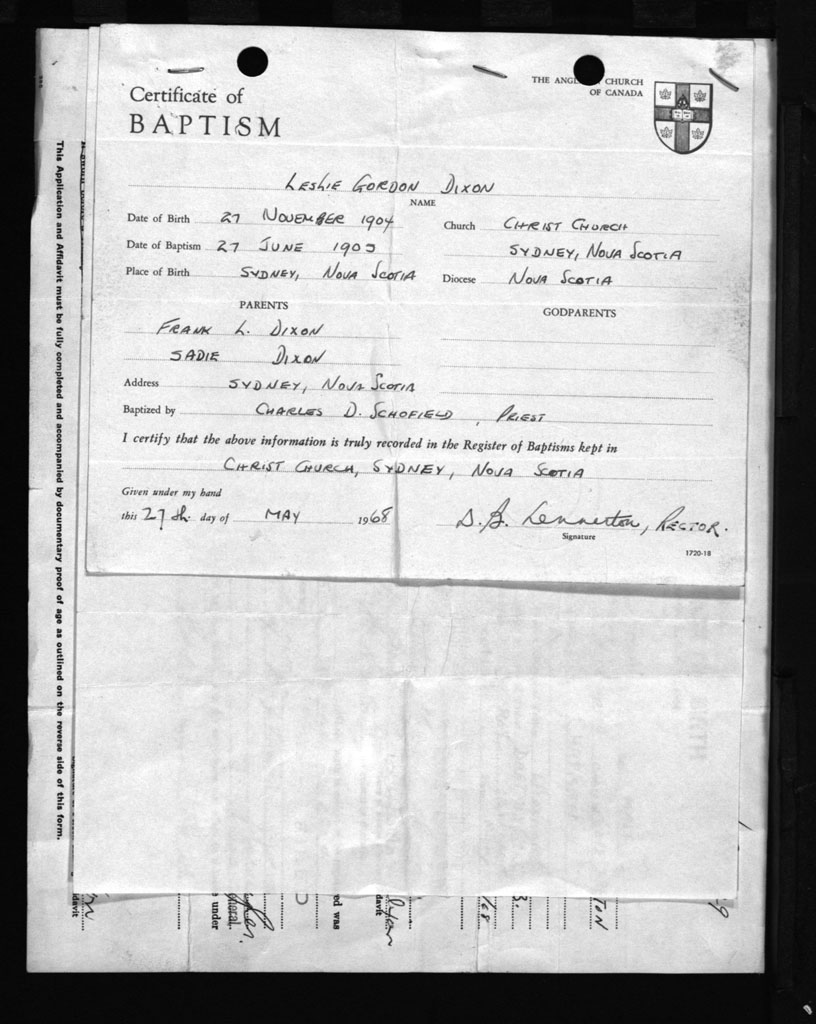 Certificate of
BAPTISM
THE CHURCH
OF CANADA
LESLIE GORDON DIXON
NAME
Date of Birth 27 NOVEMBER 1904
Church CHRIST CHURCH
Date of Baptism 27 JUNE 1905
SYDNEY, NOVA SCOTIA
Place of Birth SYDNEY, NOVA SCOTIA
Diocese NOVA SCOTIA
PARENTS
GODPARENTS
FRANK L. DIXON
SADIE DIXON
Address SYDNEY, NOVA SCOTIA
Baptized by CHARLES D. SCHOFIELD, PRIEST
I certify that the above information is truly recorded in the Register of Baptisms kept in
CHRIST CHURCH, SYDNEY, NOVA SCOTIA
Given under my hand
this 27th day of MAY 1968
RECTOR.
Signature
1720-18
This Application and Affidavit must be fully completed and accompanied by documentary proof of age as outlined on the reverse side of this form.
under
ed was